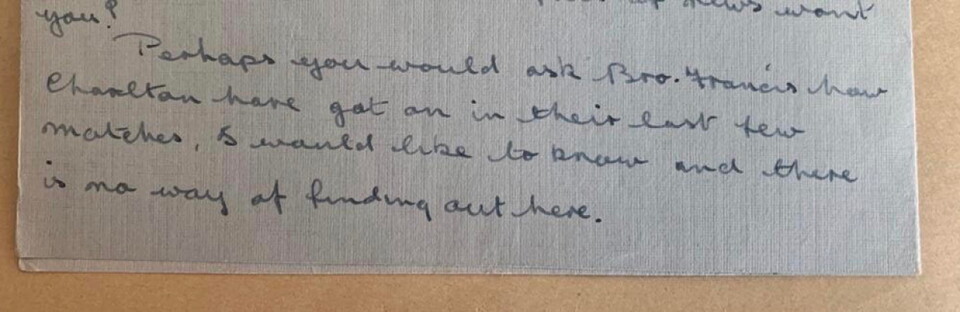 News want
you?
Perhaps you would ask Bro. Francis how
Charlton have got on in their last few
matches, I would like to know and there
is no way of finding out here.